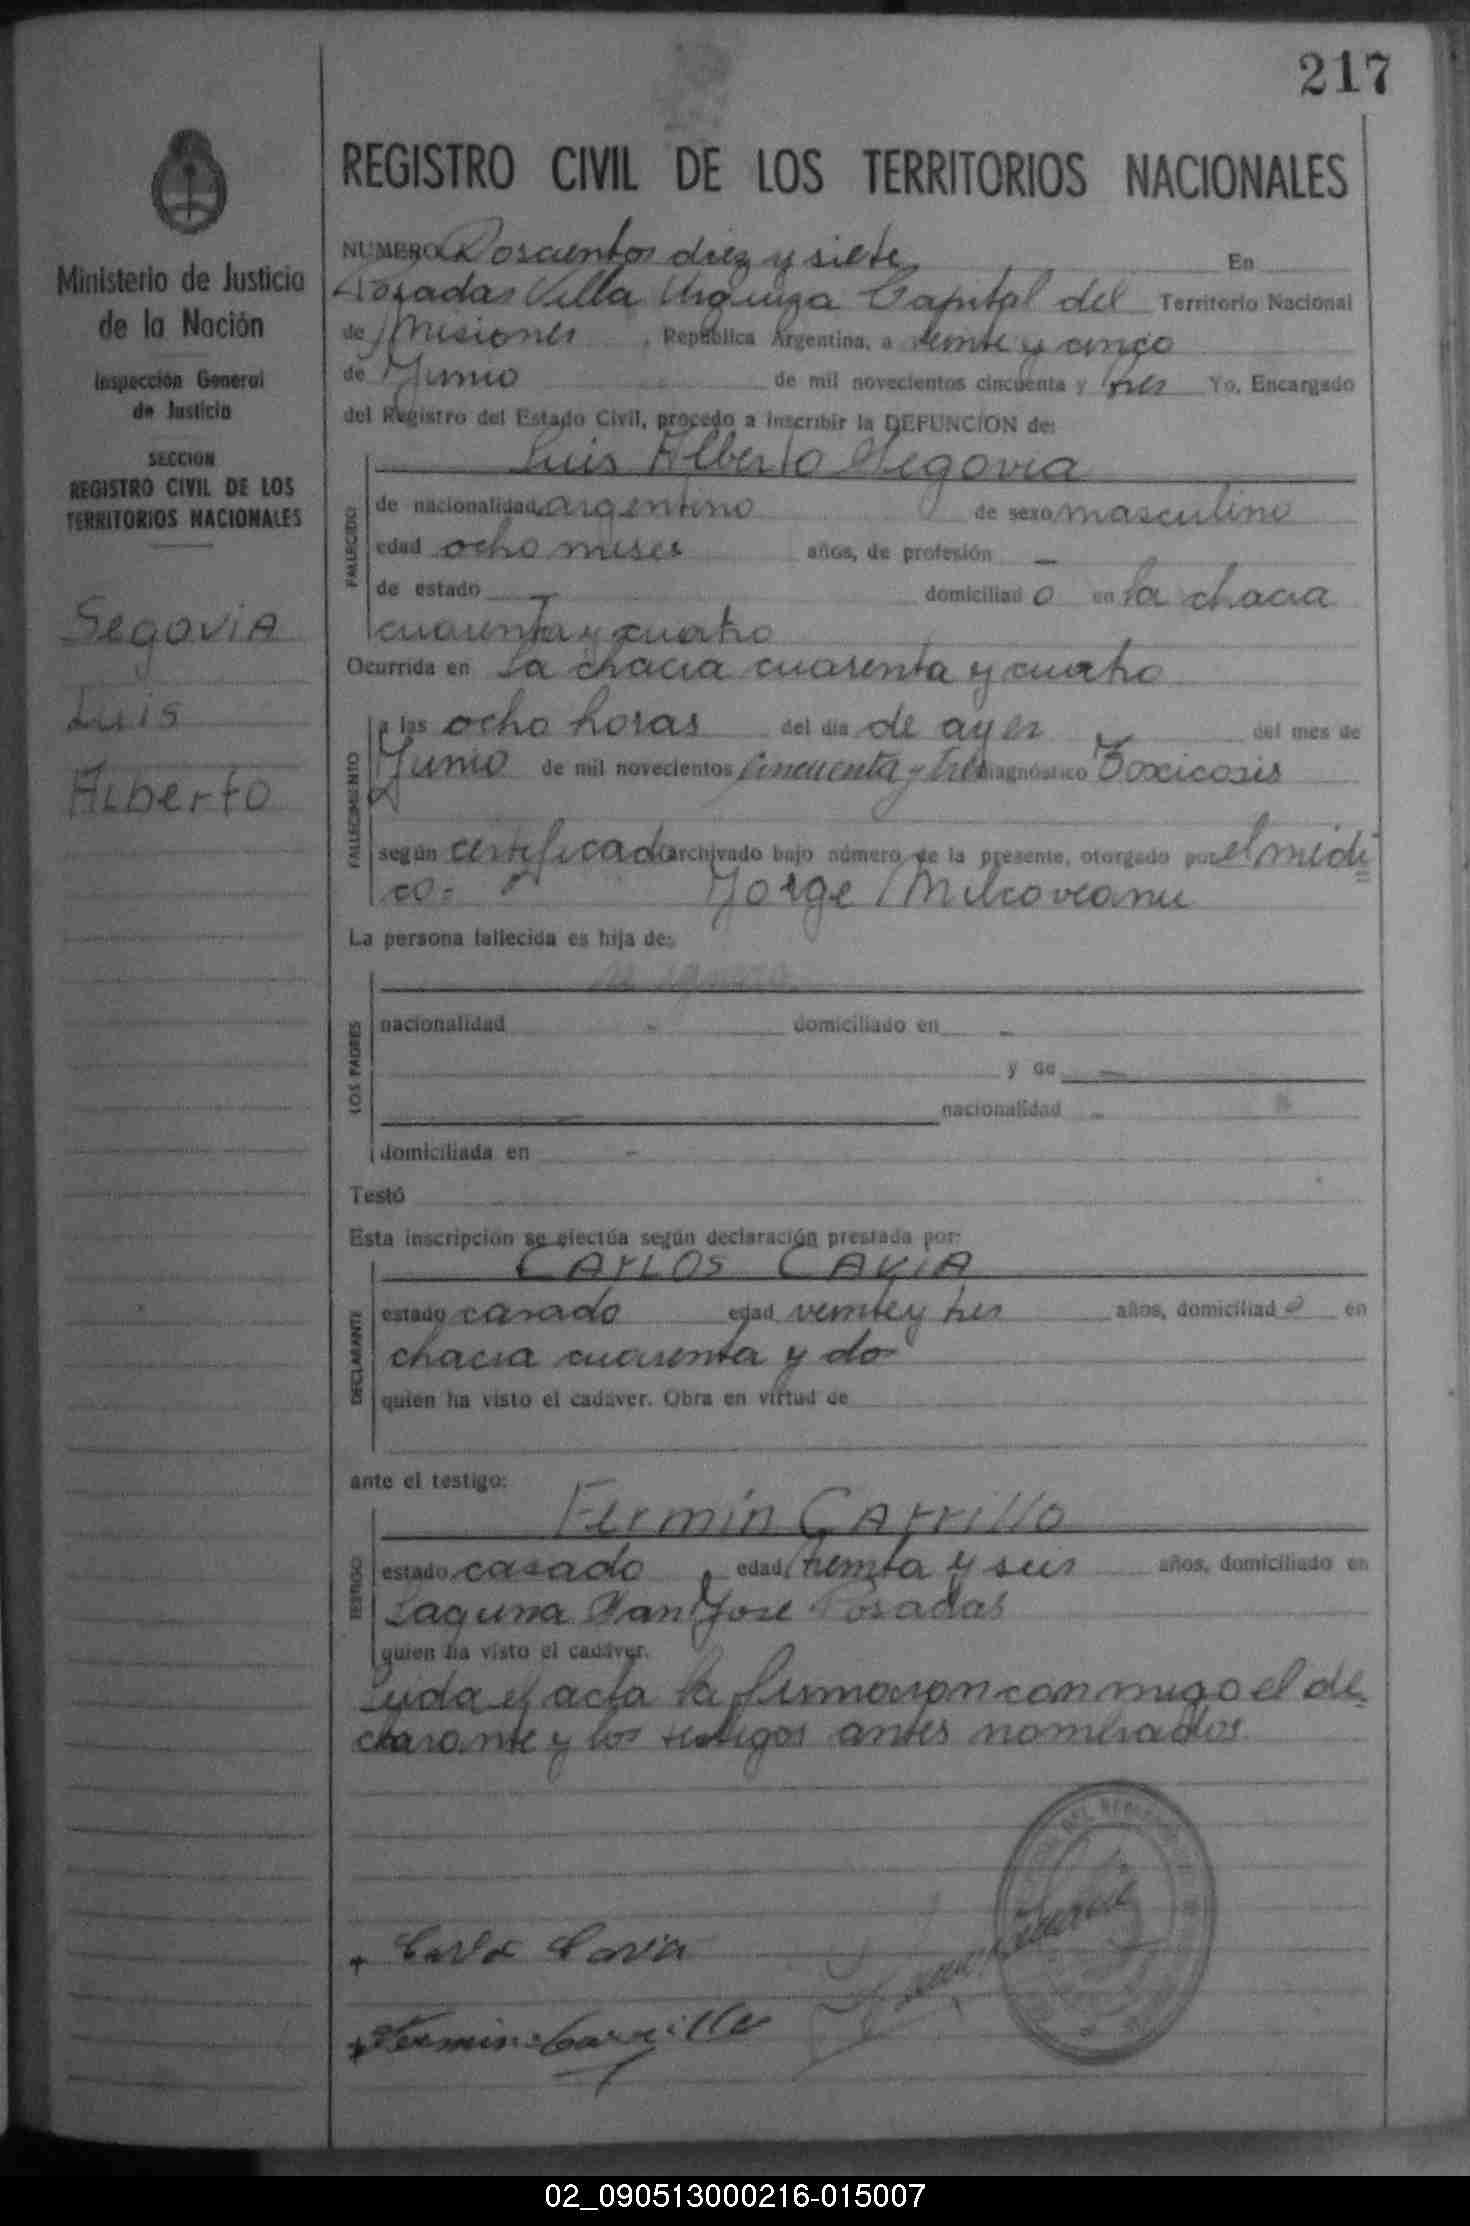 217
REGISTRO CIVIL DE LOS TERRITORIOS NACIONALES
Ministerio de Justicia
de la Nación
Inspección General
de Justicia
SECCION
REGISTRO CIVIL DE LOS
TERRITORIOS NACIONALES
Segovia
Luis
Alberto
NUMERO Doscientos diez y siete En
Posadas Villa Urquiza Capital del Territorio Nacional
de Misiones, República Argentina, a veinte y cinco
de Junio de mil novecientos cincuenta y tres Yo, Encargado
del Registro del Estado Civil, procedo a inscribir la DEFUNCION de:
Luis Alberto Segovia
FALLECIDO
de nacionalidad argentino de sexo masculino
edad ocho meses años, de profesión —
de estado — domiciliado en la chacra
cuarenta y cuatro
Ocurrida en la chacra cuarenta y cuatro
FALLECIMIENTO
a las ocho horas del día de ayer del mes de
Junio de mil novecientos cincuenta y tres diagnóstico Toxicosis
según certificado archivado bajo número de la presente, otorgado por el médi
co= Jorge Milcoveanu
La persona fallecida es hija de:
LOS PADRES
nacionalidad - domiciliado en -
y de —
— nacionalidad -
domiciliada en -
Testó
Esta inscripción se efectúa según declaración prestada por:
CArLOS CAVIA
DECLARANTE
estado casado edad veinte y tres años, domiciliado en
chacra cuarenta y dos
quien ha visto el cadáver. Obra en virtud de
ante el testigo:
Fermín CArrillo
TESTIGO
estado casado, edad treinta y seis años, domiciliado en
Laguna San José Posadas
quien ha visto el cadáver.
Leida el acta la firmaron conmigo el de-
clarante y los testigos antes nombrados.
Carlos Cavia
Fermin Carrillo
02_090513000216-015007